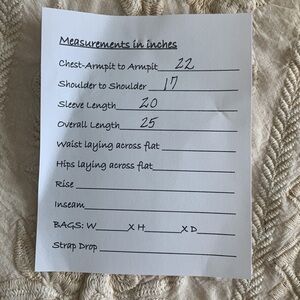 Measurements in inches
Chest-Armpit to Armpit 22
Shoulder to Shoulder 17
Sleeve Length 20
Overall Length 25
Waist laying across flat
Hips laying across flat
Rise
Inseam
BAGS: W X H X D
Strap Drop